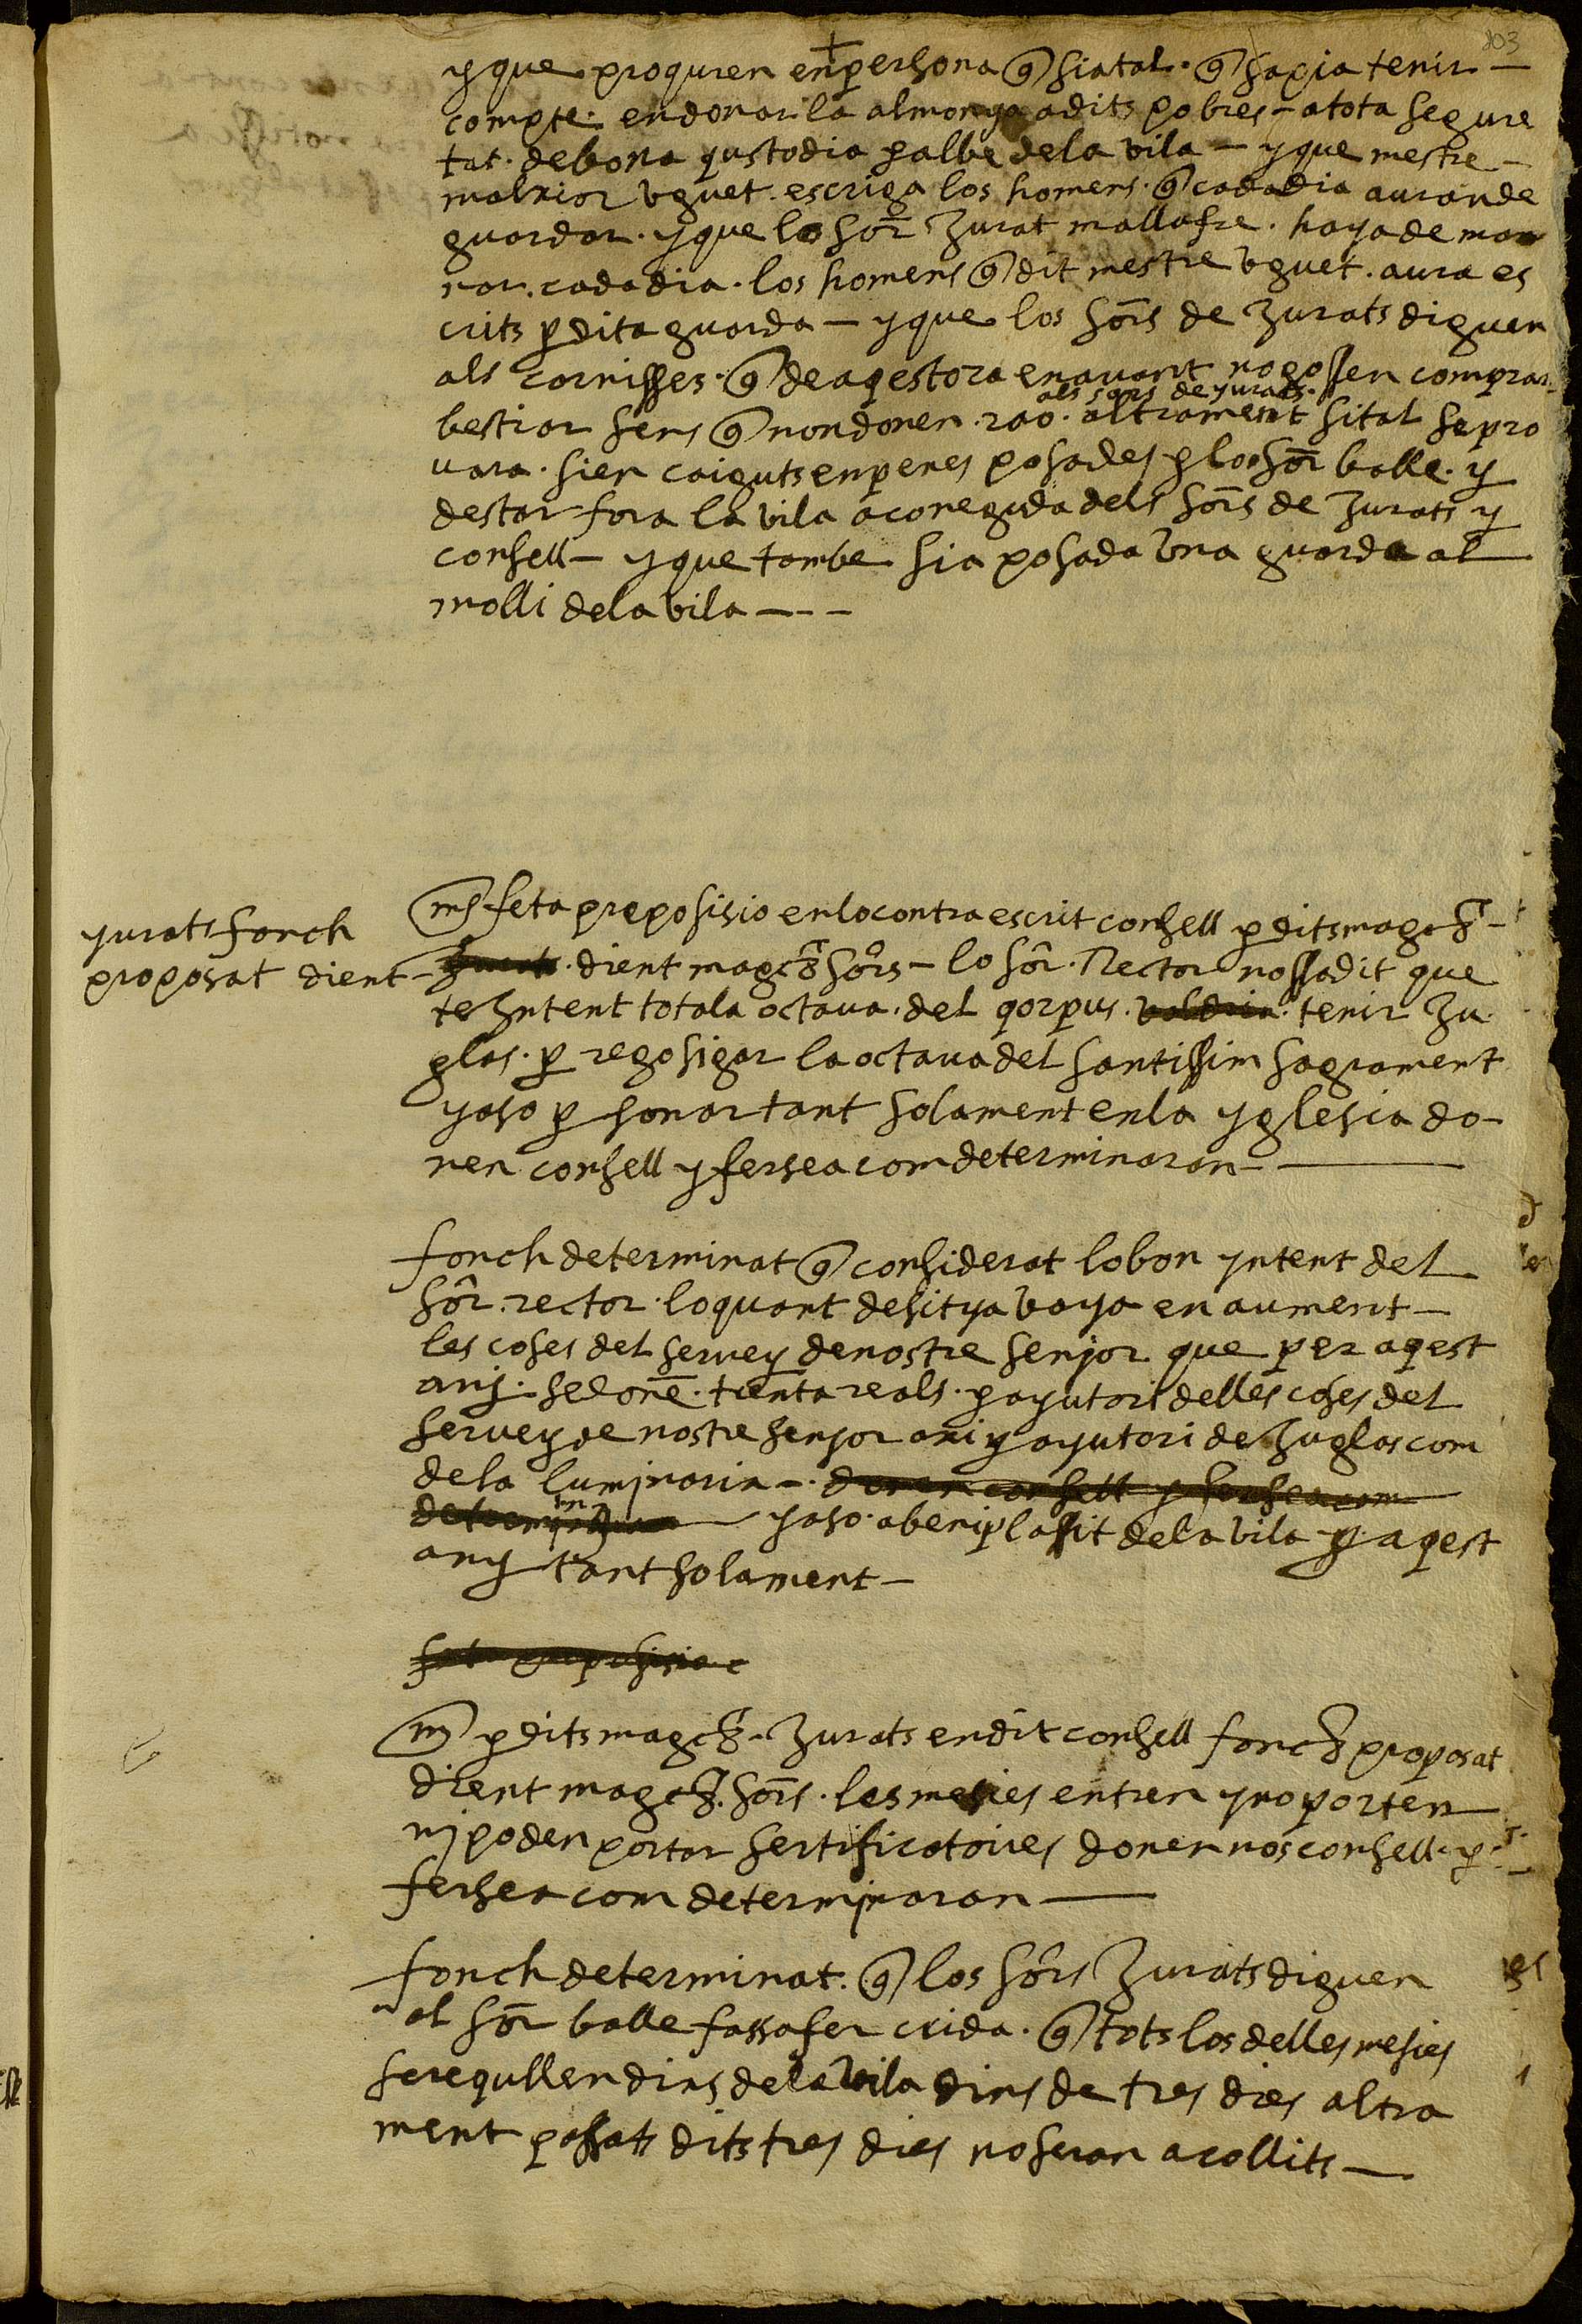 103
+
y que proquren en persona q̃ sia tal · q̃ sapia tenir —
compte · en donar la almoyna a dits pobres — a tota segure
tat · de bona qustodia y albe de la vila — y que mestre —
malxior uguet · escriga los homens · q̃ cada dia auran de
guardar · y que lo sor̃ Jurat mallafre · haya de ma
nar · cada dia · los homens q̃ dit mestre uguet · aura es
crits p̱ dita guarda — y que los sor̃s de Jurats diguen
als carnisses · q̃ de aqestora en auant no gossen comprar
als sors de jurats ·
bestiar sens q̃ non donen · rao · altrament si tal se pro
uara · sien caiguts en penes posades p̱ lo sor̃ balle · y
destar fora la vila a coneguda dels sor̃s de Jurats y
consell — y que tambe sia posada una guarda al
molli de la vila — - -
jurats fonch
proposat dient —
ms̃ feta preposisio en lo contra escrit consell p̱ dits magchs̃ —
Jurats · dient magchs̃ sor̃s — lo sor̃ · Rector nos sa dit que
te Intent tota la octaua · del qorpus · voldria · tenir Ju
glas · p̱ regosigar la octaua del santissim sagrament
y aso p̱ sonar tant solament en la yglesia do-
nen consell y fersea com determinaran — ———
fonch determinat q̃ considerat lo bon yntent del
sor̃ · rector · lo quant desitya vaya en aument —
les coses del seruey de nostre senyor que per aqest
any · se done · trenta reals · p̱ ayutori delles coses del
seruey de nostre senyor axi p̱ ayutori de Juglas com
de la luminaria — · donen consell y fersea com
determinaran — y aso · a beniplasit de la vila y p̱ aqest
any tant solament —
feta preposisio
ms̃ p̱ dits magchs̃ · Jurats en dit consell fonch proposat
dient magchs̃ · sor̃s · les mesies entren y no porten
ni poden portar sertificatories donen nos consell · p̱
fersea com determinaran ——
fonch determinat · q̃ los sor̃s Jurats diguen
al sor̃ balle fassa fer crida · q̃ tots los delles mesies
se requllen dins de la vila dins de tres dies altra
ment passats dits tres dies no seran acollits —